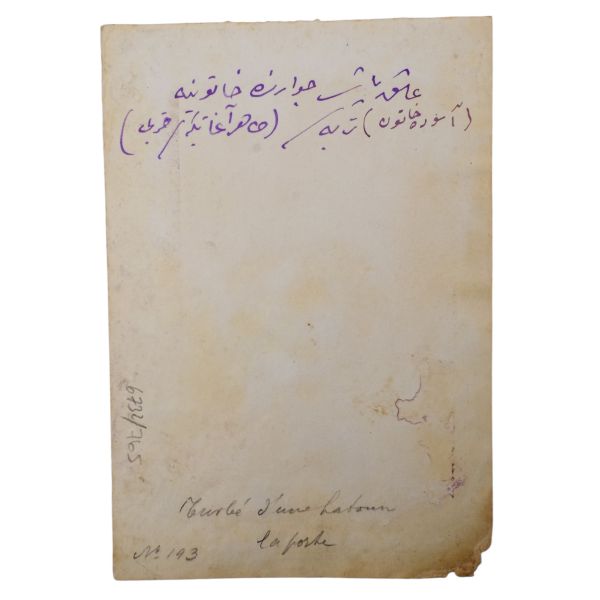 عاشق پاشا جوارنده خاتونیه
(آسوده خاتون) تربه سی (طاهر آغا تکیه سی قربی)
6734/765
Turbé d'une hatoun
la porte
No 193